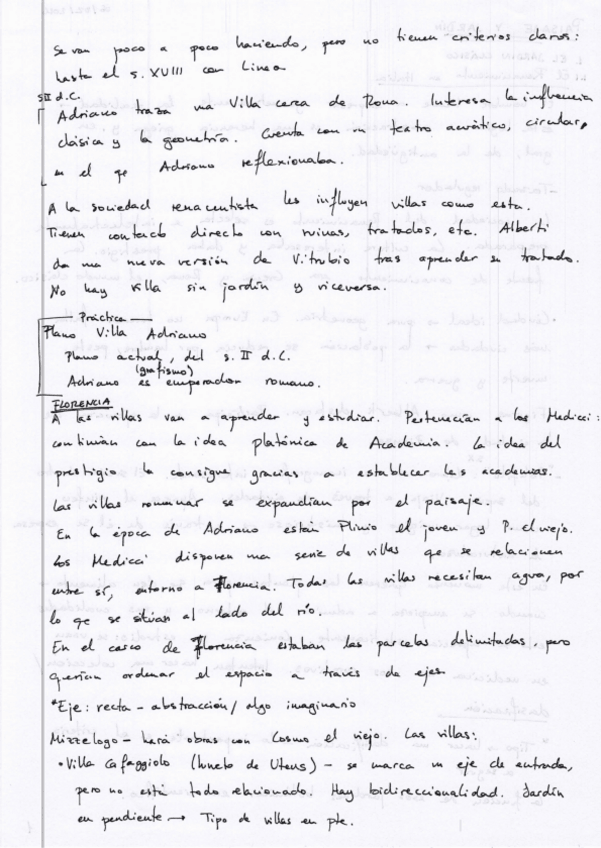 Se van poco a poco haciendo, pero no tienen criterios claros:
hasta el s. XVIII con Linea
SII d.C.
Adriano traza una Villa cerca de Roma. Interesa la influencia
clásica y la geometría. Cuenta con un teatro acuático, circular,
en el qe Adriano reflexionaba.
A la sociedad renacentista les influyen villas como esta.
Tienen contacto directo con ruinas, tratados, etc. Alberti
da una nueva versión de Vitrubio tras aprender su tratado.
No hay villa sin jardín y viceversa.
Práctica
Plano Villa Adriano
Plano actual, del s. II d.C.
(grafismo)
Adriano es emperador romano.
FLORENCIA
A las villas van a aprender y estudiar. Pertenecían a los Medicci:
continúan con la idea platónica de Academia. La idea del
prestigio la consigue gracias a establecer las academias.
Las villas romanas se expandían por el paisaje.
En la época de Adriano están Plinio el joven y P. el viejo.
Los Medicci disponen una serie de villas qe se relacionen
entre sí, entorno a Florencia. Todas las villas necesitan agua, por
lo qe se sitúan al lado del río.
En el casco de Florencia estaban las parcelas delimitadas, pero
querían ordenar el espacio a través de ejes.
*Eje: recta - abstracción/ algo imaginario
Mizzelogo - hará obras con Cosmo el viejo. Las villas:
• Villa Cafaggiolo (luneto de Utens) - se marca un eje de entrada,
pero no está todo relacionado. Hay bidireccionalidad. Jardín
en pendiente → Tipo de villas en pte.